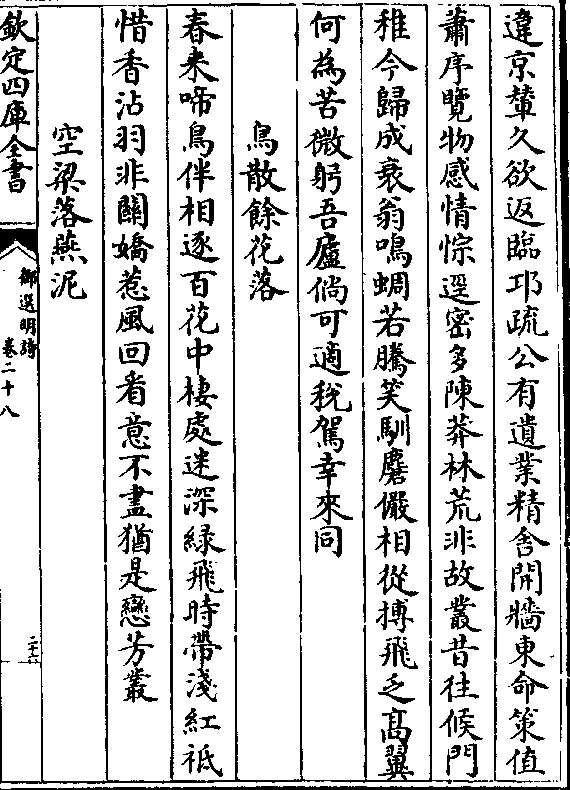 違京輦久欲返臨邛疏公有遺業精舍開牆東命策值
蕭序覽物感情悰遥密多陳莽林荒非故叢昔往候門
稚今歸成衰翁鳴蜩若騰笑馴麏儼相從摶飛乏高翼
何為苦微躬吾廬倘可適稅駕幸來同
鳥散餘花落
春來啼鳥伴相逐百花中棲處迷深緑飛時帶淺紅祗
惜香沾羽非關嬌惹風回看意不盡猶是戀芳叢
空梁落燕泥
欽定四庫全書
御選明詩
卷二十八
二十六